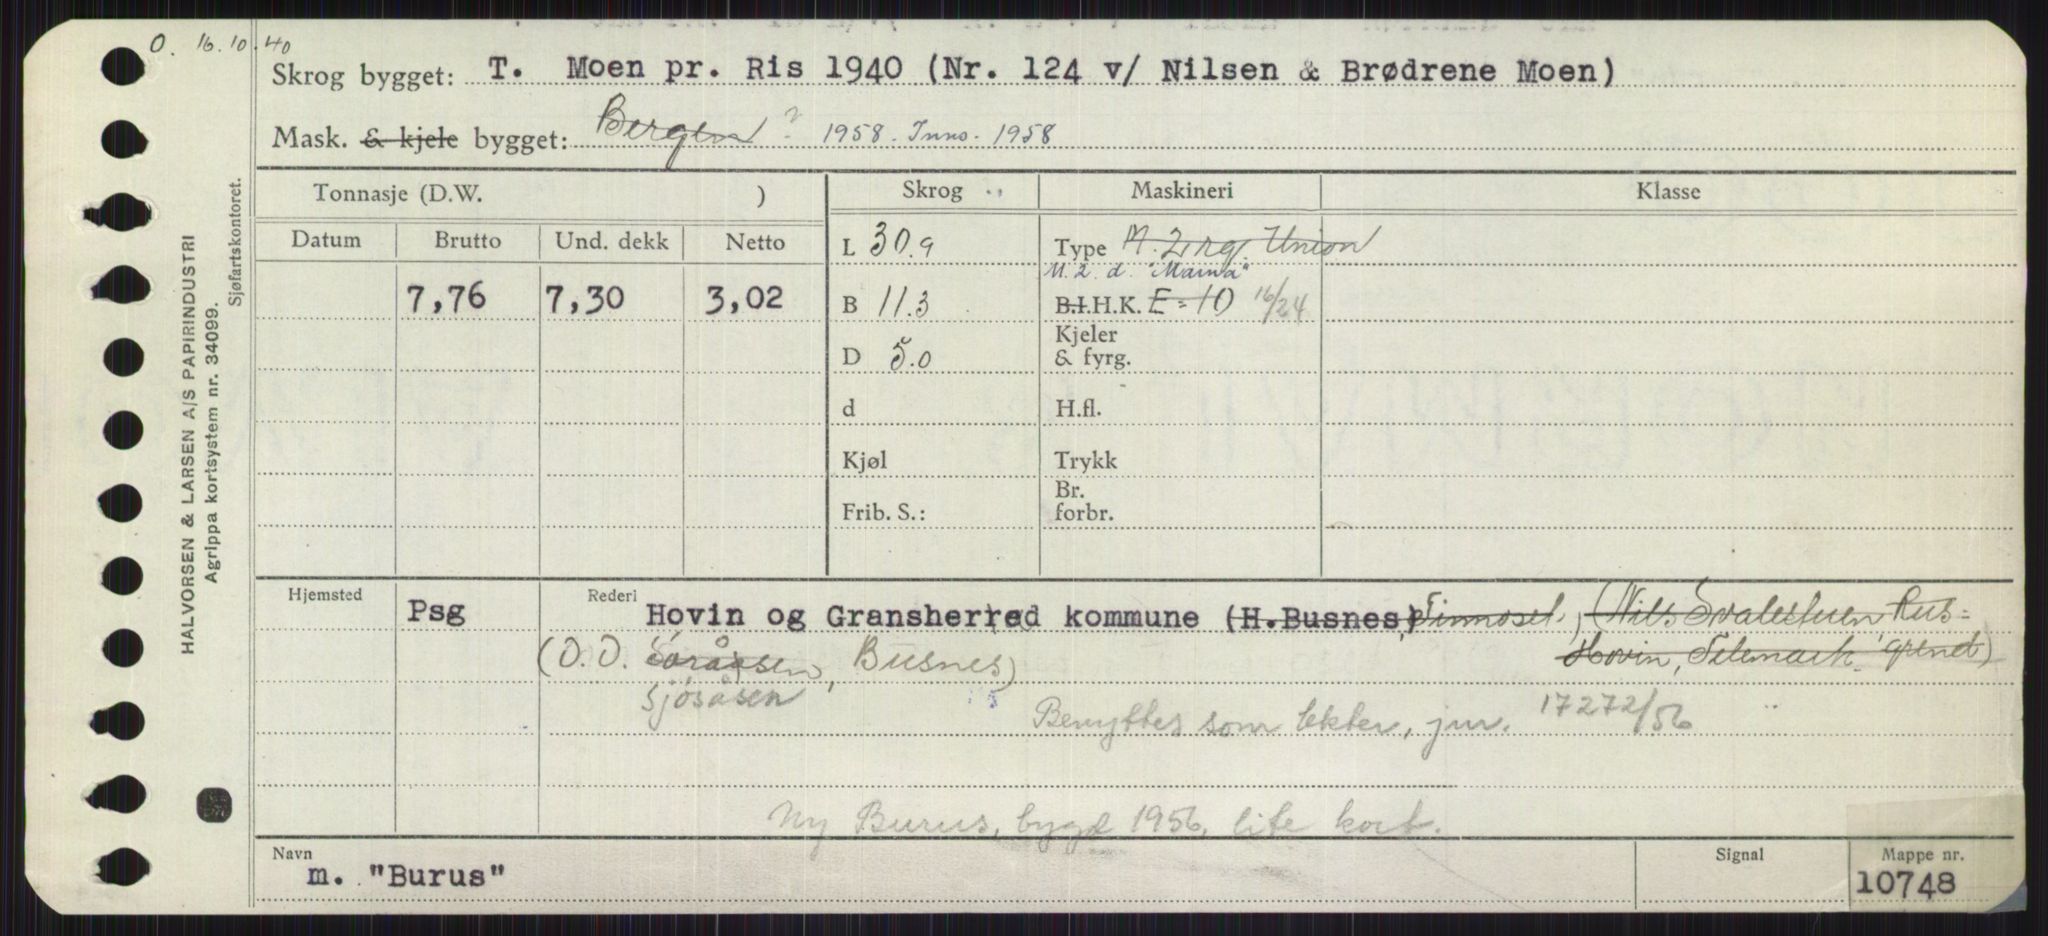 O. 16.10.40
Skrog bygget: T. Moen pr. Ris 1940 (Nr. 124 v/ Nilsen & Brødrene Moen)
Mask. & kjele bygget: Bergen ? 1958. Inno. 1958
Tonnasje (D.W. ) Skrog Maskineri Klasse
Datum Brutto Und. dekk Netto L 30.9 Type M. 2 Union
M. 2. d. "Marna"
7,76 7,30 3,02 B 11.3 B.I.H.K. E=10 16/24
D 5.0 Kjeler & fyrg.
d H.fl.
Kjøl Trykk
Frib. S.: Br. forbr.
Hjemsted Psg Rederi Hovin og Gransherred kommune (H.Busnes) Tinnoset, (Nils Svalestuen Rus-
(O. O. Busnes) Hovin, Telemark grend)
Sjøsåsen
Benyttes som lekter, jnr. 17272/56
Ny Burus, bygd 1956, lite kort.
Navn m. "Burus" Signal Mappe nr. 10748
HALVORSEN & LARSEN A/S PAPIRINDUSTRI
Agrippa kortsystem nr. 34099.
Sjøfartskontoret.